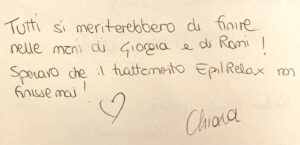 Tutti si meriterebbero di finire
nelle mani di Gioggia e di Romi!
Speravo che il trattamento EpilRelax non
finisse mai!
Chiara